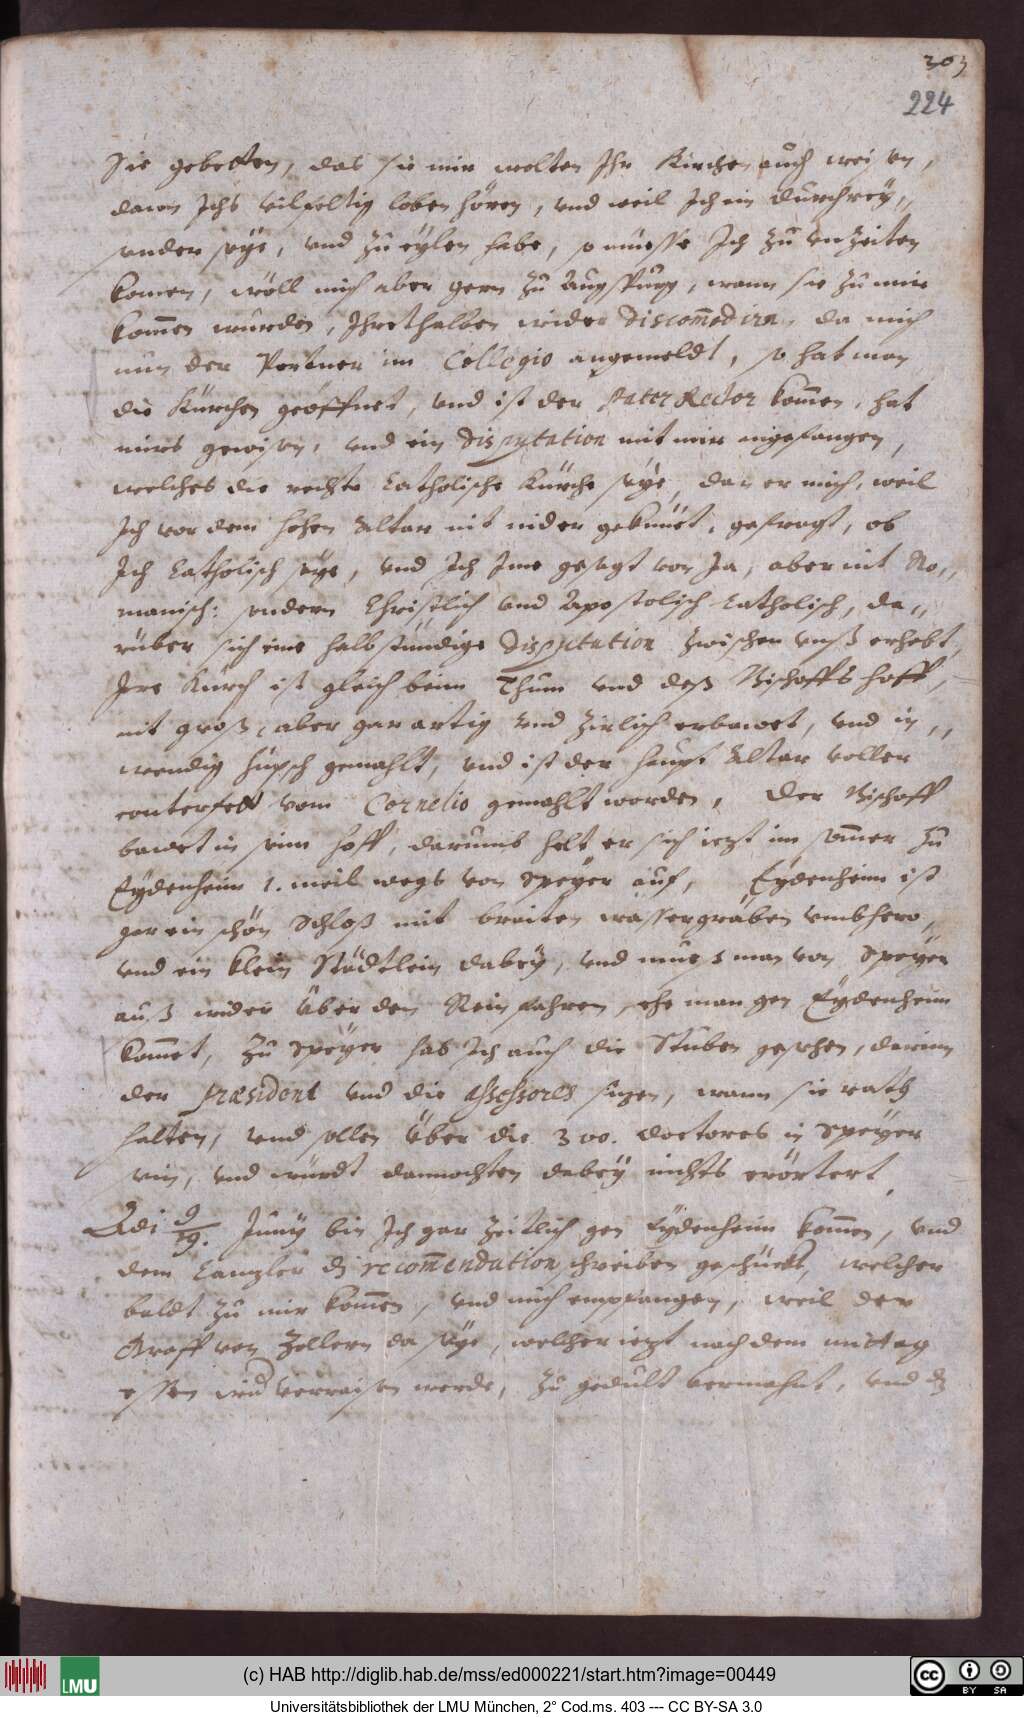 303
224
Sie gebetten, das sie mir wolten Ihr Kirchen auch weisen,
dann Ichs vilfeltig loben hören, vnd weil Ich ein durchrey„
sender seye, vnd zu eylen habe, so müesse Ich zu vnzeiten
komen, wöll mich aber gern zu Augspurg, wann sie zu mir
kommen wurden, Ihrethalben wider discomedirn, da mich
nun der Portner im Collegio angemeldt, so hat man
die Kürchen geöffnet, vnd ist der Pater Rector kommen, hat
mirs gewisen, vnd ein disputation mit mir angefangen,
welches die rechte Catholische Kürche seye, dan er mich, weil
Ich vor dem hohen Altar nit nider gekniiet, gefragt, ob
Ich Catholisch seye, vnd Ich Ime gesagt von Ja, aber nit Ro„
manisch: sondern Christlich vnd Apostolisch Catholisch, da„
rüber sich eine halbstündige disputation zwischen vnß erhebt,
Ire Kürch ist gleich beim Thum vnd deß Bischoffs hoff,
nit groß, aber gar artig vnd zirlich erbawet, vnd in„
wendig hüpsch gemahlt, vnd ist der haupt Altar voller
conterfett vom Cornelio gemahlt worden, Der Bischoff
bawet in seim hoff, darumb helt er sich iezt im Sommer zu
Eydenheim 1. meil wegs von Speyer auf, Eydenheim ist
gar ein schön Schloß mit breiten wassergräben vmbhero,
vnd ein klein Städtlein dabey, vnd mues man von Speyer
auß wider über den Rein fahren, ehe man gen Eydenheim
kommet, zu Speyer hab Ich auch die Stuben gesehen, darinn
der Præsident vnd die Assessores sizen, wann sie rath
halten, vnd sollen über die 300. doctores in Speyer
sein, vnd würdt dannochten dabey nichts erörtert.
Adi 9/19. Juny bin Ich gar zeitlich gen Eydenheim kommen, vnd
dem Canzler dz recommendation schreiben geschückt, welcher
baldt zu mir kommen, vnd mich empfangen, weil der
Graff von Zollern da seye, welcher iezt nach dem mittag
essen wird verraisen werde, zu gedult vermahnt, vnd dz
(c) HAB http://diglib.hab.de/mss/ed000221/start.htm?image=00449
LMU
cc BY SA
Universitätsbibliothek der LMU München, 2° Cod.ms. 403 --- CC BY-SA 3.0